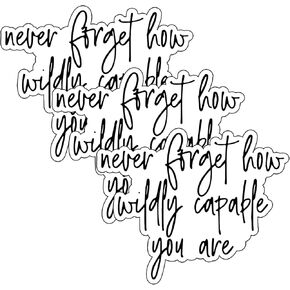 never forget how
wildly capable
you
never forget how
wildly capable
yo
never forget how
wildly capable
you are